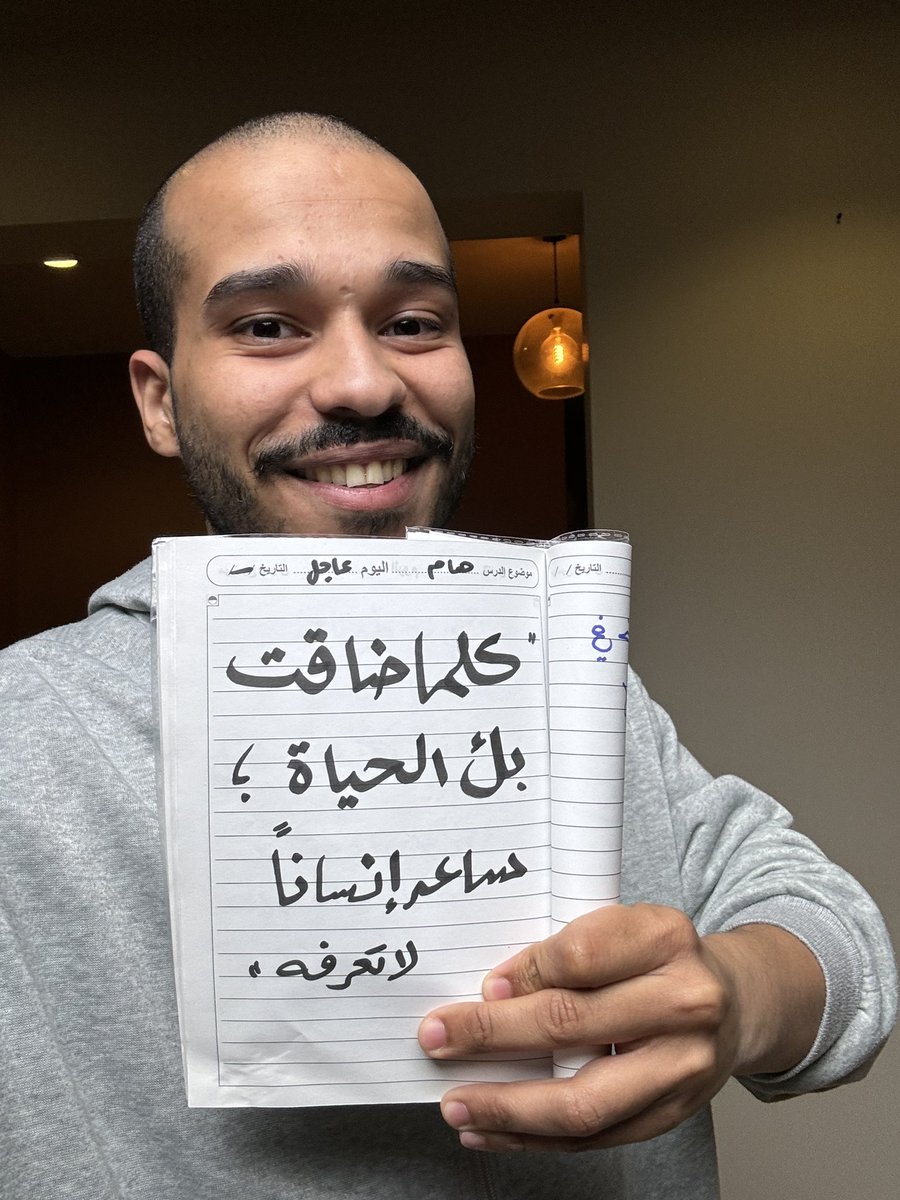 موضوع الدرس هام اليوم عاجل التاريخ
التاريخ / /
"كلما ضاقت
بك الحياة ؛
ساعد إنساناً
لا تعرفه"
في